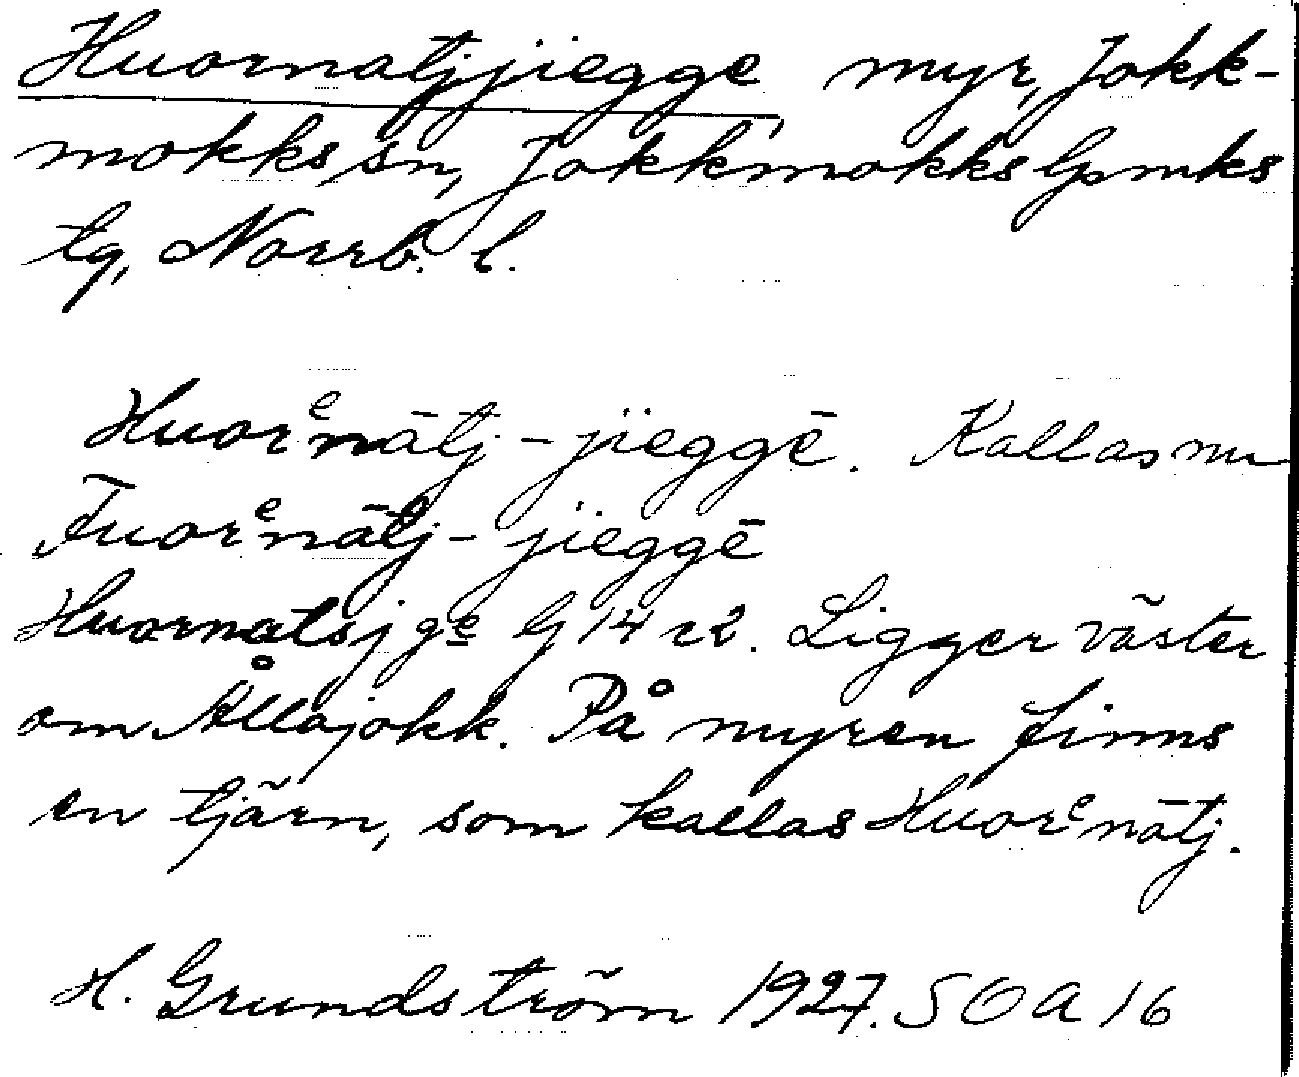 Huornatjjiegge, myr, Jokk-
mokks sn, Jokkmokks lpmks
tg, Norrb. l.
Huorᵉnātj-jieggē. Kallas nu
Fuorᵉnātj-jieggē
Huornatsj ge G 14 22. Ligger väster
om Ållojokk. På myren finns
en tjärn, som kallas Huorᵉnātj.
H. Grundström 1927. SOA 16